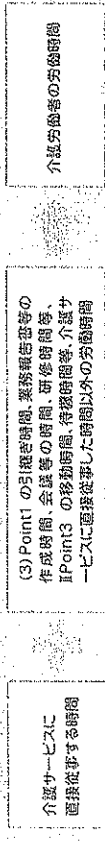 介護サービスに
直接従事する時間
(3) Point1 の引継ぎ時間、業務報告書等の
作成時間、会議等の時間、研修時間等、
ⅡPoint3 の移動時間、待機時間等、介護サ
ービスに直接従事した時間以外の労働時間
介護労働者の労働時間